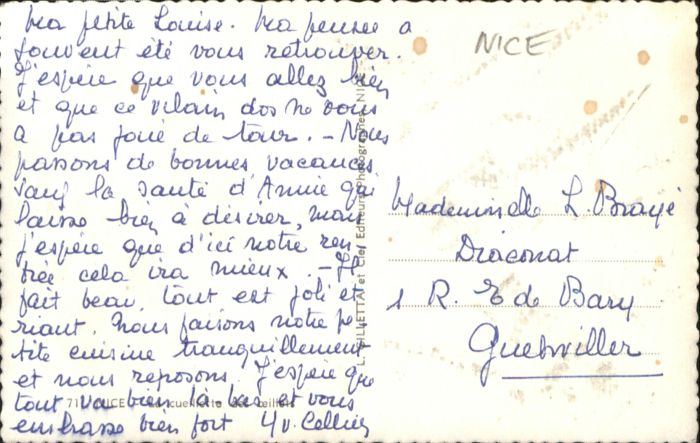 Ma petite Louise. Ma pensée a
souvent été vous retrouver.
J'espère que vous allez bien
et que ce vilain dos ne vous
a pas joué de tour. - Nous
passons de bonnes vacances
sauf la santé d'Annie qui
laisse bien à désirer, mais
j'espère que d'ici notre ren
trée cela ira mieux. - Il
fait beau, tout est joli et
riant. Nous faisons notre pe
tite cuisine tranquillement
et nous reposons. J'espère que
tout va bien là bas et vous
embrasse bien fort
NICE
Mademoiselle L. Brayé
Diaconat
1 R. E de Bary
Guebwiller
L. GILLETTA et Cie, Editeurs Photographes, NICE